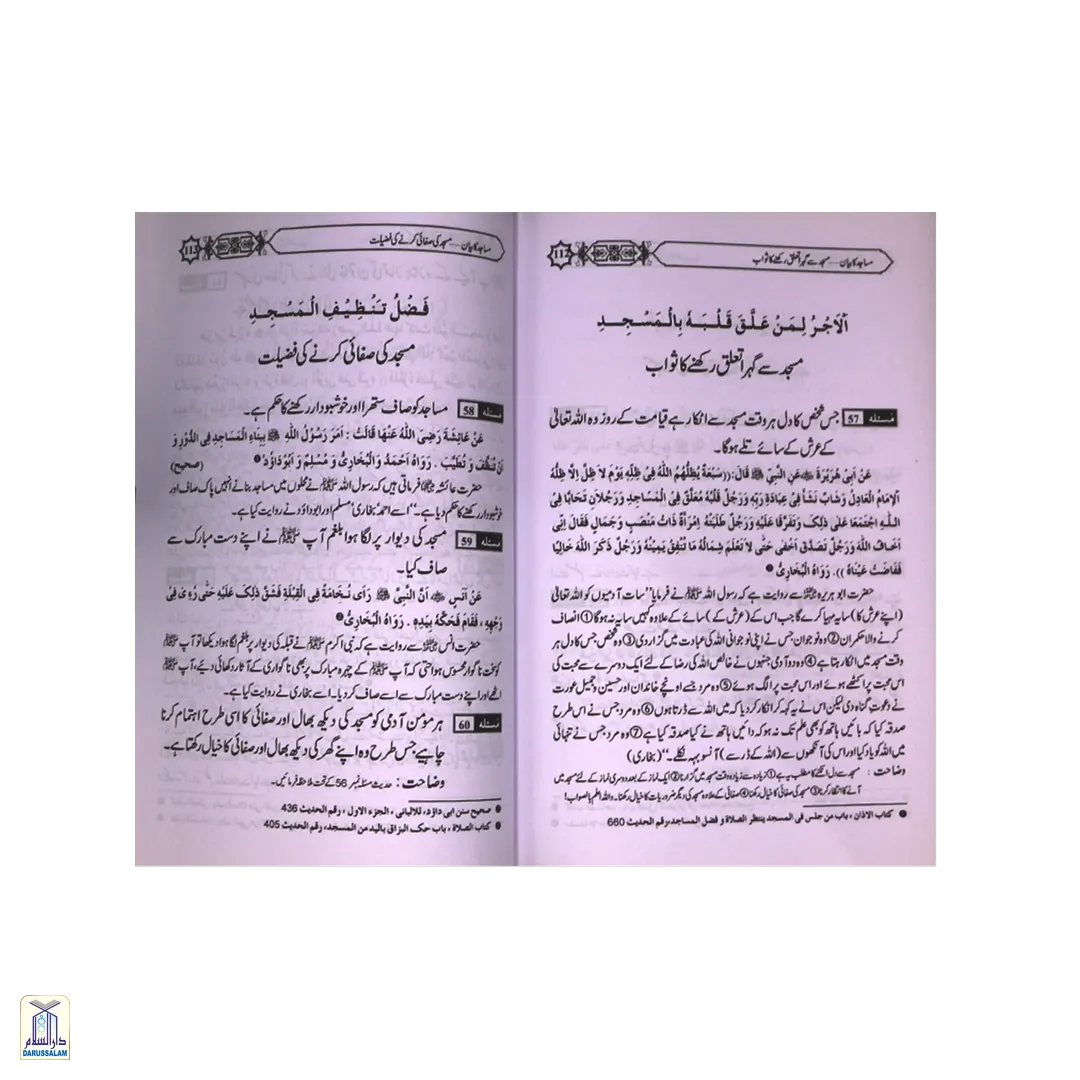 112
مساجد کا بیان .... مسجد سے گہرا تعلق رکھنے کا ثواب
اَلْاَجْرُ لِمَنْ عَلَّقَ قَلْبَهُ بِالْمَسْجِدِ
مسجد سے گہرا تعلق رکھنے کا ثواب
مسئله 57 جس شخص کا دل ہر وقت مسجد سے اٹکا رہے قیامت کے روز وہ اللہ تعالیٰ
کے عرش کے سائے تلے ہوگا۔
عَنْ اَبِیْ هُرَيْرَةَ ﷺ عَنِ النَّبِيِّ ﷺ قَالَ:((سَبْعَةٌ يُظِلُّهُمُ اللّٰهُ فِیْ ظِلِّهٖ يَوْمَ لَا ظِلَّ اِلَّا ظِلُّهُ
اَلْاِمَامُ الْعَادِلُ وَ شَابٌّ نَشَأَ فِیْ عِبَادَةِ رَبِّهٖ وَ رَجُلٌ قَلْبُهُ مُعَلَّقٌ فِی الْمَسَاجِدِ وَ رَجُلَانِ تَحَابَّا فِی
اللّٰهِ اجْتَمَعَا عَلٰی ذٰلِکَ وَ تَفَرَّقَا عَلَيْهِ وَ رَجُلٌ طَلَبَتْهُ اِمْرَأَةٌ ذَاتُ مَنْصَبٍ وَ جَمَالٍ فَقَالَ اِنِّیْ
اَخَافُ اللّٰهَ وَ رَجُلٌ تَصَدَّقَ اَخْفٰی حَتّٰی لَا تَعْلَمَ شِمَالُهُ مَا تُنْفِقُ يَمِيْنُهُ وَ رَجُلٌ ذَکَرَ اللّٰهَ خَالِيًا
فَفَاضَتْ عَيْنَاهُ )). رَوَاهُ الْبُخَارِیُّ ❶
حضرت ابو ہریرہ سے روایت ہے کہ رسول اللہ ﷺ نے فرمایا ”سات آدمیوں کو اللہ تعالیٰ
(اپنے عرش کا) سایہ مہیا کرے گا جب اس کے (عرش کے) سائے کے علاوہ کہیں سایہ نہ ہو گا ① انصاف
کرنے والا حکمران ② وہ نوجوان جس نے اپنی نوجوانی اللہ کی عبادت میں گزار دی ③ وہ شخص جس کا دل ہر
وقت مسجد میں اٹکا رہتا ہے ④ وہ دو آدمی جنہوں نے خالص اللہ کی رضا کے لئے ایک دوسرے سے محبت کی
اس محبت پر اکٹھے ہوئے اور اس محبت پر الگ ہوئے ⑤ وہ مرد جسے اونچے خاندان اور حسین و جمیل عورت
نے دعوت گناہ دی لیکن اس نے یہ کہہ کر انکار کر دیا کہ میں اللہ سے ڈرتا ہوں ⑥ وہ مرد جس نے اس طرح
صدقہ کیا کہ بائیں ہاتھ کو بھی علم تک نہ ہو کہ دائیں ہاتھ نے کیا صدقہ کیا ہے ⑦ وہ مرد جس نے تنہائی
میں اللہ کو یاد کیا اور اس کی آنکھوں سے (اللہ کے ڈر سے) آنسو بہہ نکلے۔“ (بخاری)
وضاحت : مسجد سے دل اٹکنے کا مطلب یہ ہے ① زیادہ سے زیادہ وقت مسجد میں گزارنا ② ایک نماز کے بعد دوسری نماز کے لئے مسجد میں
آنے کا انتظار کرنا ③ مسجد کی صفائی کا خیال رکھنا ④ صفائی کے علاوہ مسجد کی دیگر ضروریات کا خیال رکھنا۔ واللہ اعلم بالصواب!
❶ کتاب الاذان ، باب من جلس فی المسجد ینتظر الصلاة و فضل المساجد،رقم الحدیث 660
113
مساجد کا بیان .... مسجد کی صفائی کرنے کی فضیلت
فَضْلُ تَنْظِيْفِ الْمَسْجِدِ
مسجد کی صفائی کرنے کی فضیلت
مسئله 58 مساجد کو صاف ستھرا اور خوشبودار رکھنے کا حکم ہے۔
عَنْ عَائِشَةَ رَضِیَ اللّٰهُ عَنْهَا قَالَتْ : اَمَرَ رَسُوْلُ اللّٰهِ ﷺ بِبِنَاءِ الْمَسَاجِدِ فِی الدُّوْرِ وَ
اَنْ تُنَظَّفَ وَ تُطَيَّبَ . رَوَاهُ اَحْمَدُ وَالْبُخَارِیُّ وَ مُسْلِمٌ وَ اَبُوْدَاوُدَ ❶ (صحيح)
حضرت عائشہ فرماتی ہیں کہ رسول اللہ ﷺ نے محلوں میں مساجد بنانے انہیں پاک صاف اور
خوشبودار رکھنے کا حکم دیا ہے۔“ اسے احمد‘ بخاری‘ مسلم اور ابوداؤد نے روایت کیا ہے۔
مسئله 59 مسجد کی دیوار پر لگا ہوا بلغم آپ ﷺ نے اپنے دست مبارک سے
صاف کیا۔
عَنْ اَنَسٍ اَنَّ النَّبِیَّ ﷺ رَاٰی نُخَامَةً فِی الْقِبْلَةِ فَشَقَّ ذٰلِکَ عَلَيْهِ حَتّٰی رُءِیَ فِیْ
وَجْهِهٖ ، فَقَامَ فَحَکَّهُ بِيَدِهٖ . رَوَاهُ الْبُخَارِیُّ ❷
حضرت انس سے روایت ہے کہ نبی اکرم ﷺ نے قبلہ کی دیوار پر بلغم لگا ہوا دیکھا تو آپ ﷺ
کو سخت ناگوار محسوس ہوا حتی کہ آپ ﷺ کے چہرہ مبارک پر بھی ناگواری کے آثار دکھائی دیے، آپ ﷺ
اٹھے اور اپنے دست مبارک سے اسے صاف کر دیا۔ اسے بخاری نے روایت کیا ہے۔
مسئله 60 ہر مومن آدمی کو مسجد کی دیکھ بھال اور صفائی کا اسی طرح اہتمام کرنا
چاہیے جس طرح وہ اپنے گھر کی دیکھ بھال اور صفائی کا خیال رکھتا ہے۔
وضاحت : حدیث مسئلہ نمبر 56 کے تحت ملاحظہ فرمائیں۔
❶ صحیح سنن ابی داؤد، للالبانی ، الجزء الاول ، رقم الحدیث 436
❷ کتاب الصلاة ، باب حک البزاق بالید من المسجد، رقم الحدیث 405
دارالسلام
DARUSSALAM